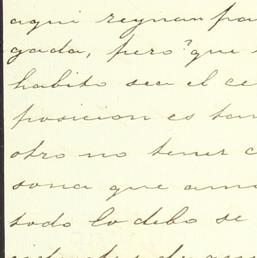 aqui reynan pa
gada, pero? que
habito sea el ce
posicion es tan
otro no tener c
sona que am
todo lo debo se